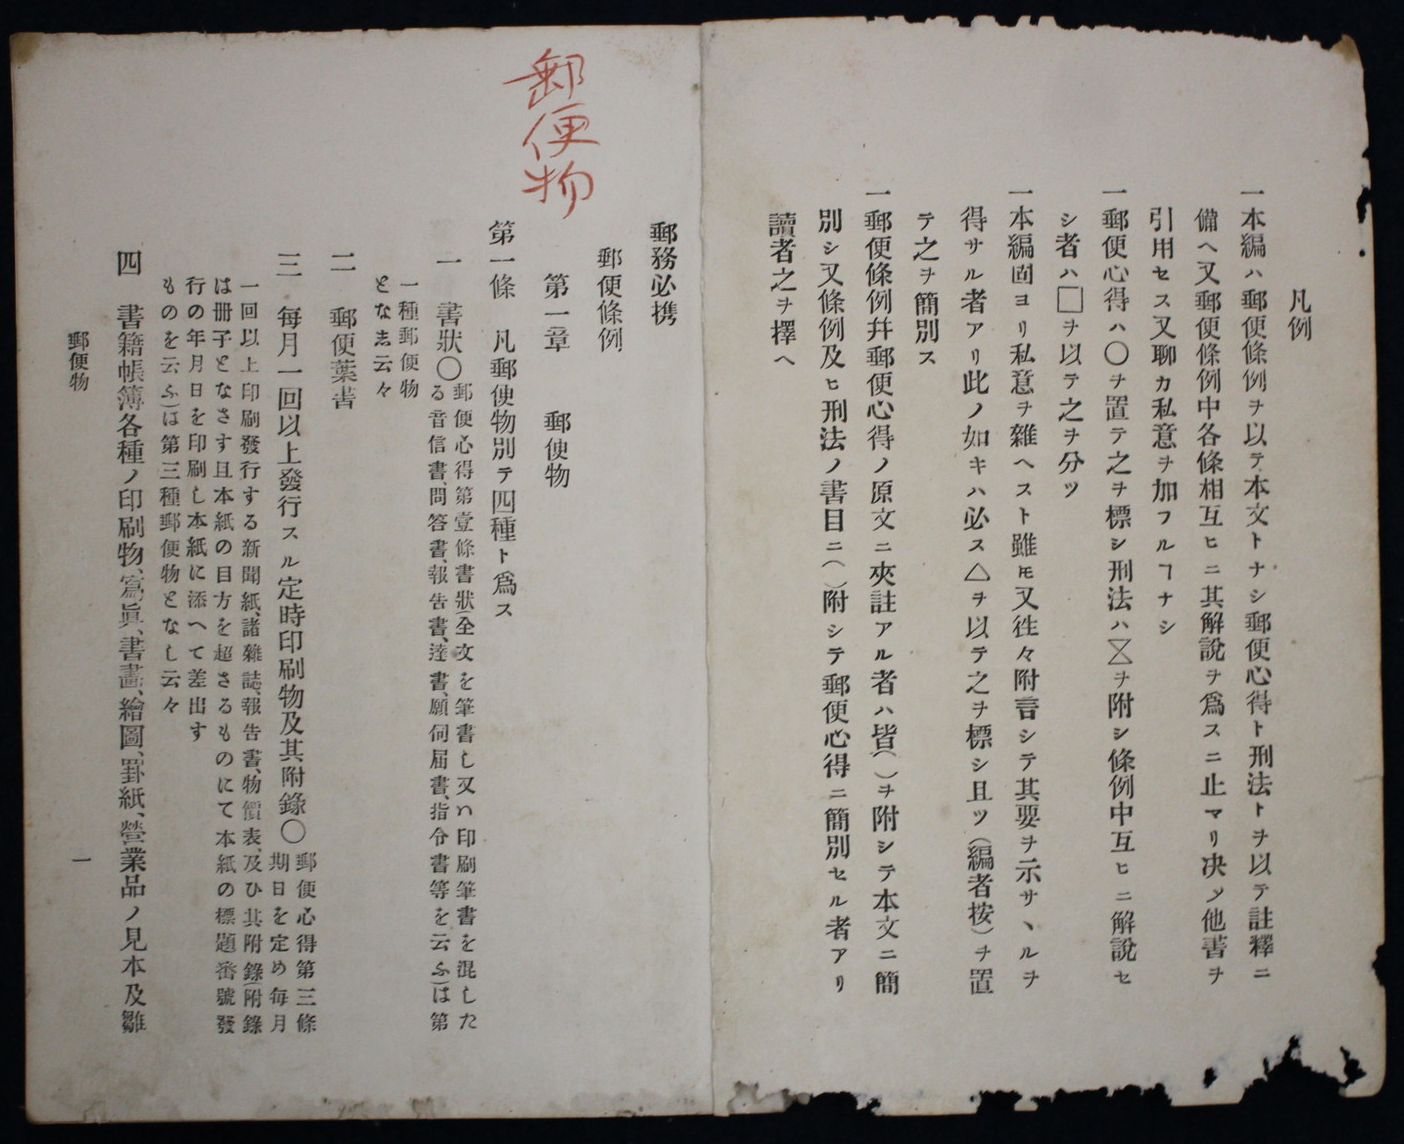 凡例
一本編ハ郵便條例ヲ以テ本文トナシ郵便心得ト刑法トヲ以テ註釋ニ
備ヘ又郵便條例中各條相互ヒニ其解說ヲ爲スニ止マリ决メ他書ヲ
引用セス又聊カ私意ヲ加フルヿナシ
一郵便心得ハ〇ヲ置テ之ヲ標シ刑法ハ⧖ヲ附シ條例中互ヒニ解說セ
シ者ハ□ヲ以テ之ヲ分ツ
一本編固ヨリ私意ヲ雜ヘスト雖𪜈又徃々附言シテ其要ヲ示サヽルヲ
得サル者アリ此ノ如キハ必ス△ヲ以テ之ヲ標シ且ツ(編者按)ヲ置
テ之ヲ簡別ス
一郵便條例幷郵便心得ノ原文ニ夾註アル者ハ皆( )ヲ附シテ本文ニ簡
別シ又條例及ヒ刑法ノ書目ニ( )附シテ郵便心得ニ簡別セル者アリ
讀者之ヲ擇ヘ
郵便物
郵務必携
郵便條例
第一章 郵便物
第一條 凡郵便物別テ四種ト爲ス
一 書狀〇郵便心得第壹條書狀(全文を筆書し又ハ印刷筆書を混した
る音信書、問答書、報告書、達書、願伺届書、指令書等を云ふ)は第
一種郵便物
となし云々
二 郵便葉書
三 每月一回以上發行スル定時印刷物及其附錄〇郵便心得第三條
期日を定め每月
一回以上印刷發行する新聞紙、諸雜誌、報告書、物價表、及ひ其附錄(附錄
は册子となさす且本紙の目方を超さるものにて本紙の標題番號發
行の年月日を印刷し本紙に添へて差出す
ものを云ふ)は第三種郵便物となし云々
四 書籍帳簿各種ノ印刷物、寫眞、書畵、繪圖、罫紙、營業品ノ見本及雛
郵便物
一